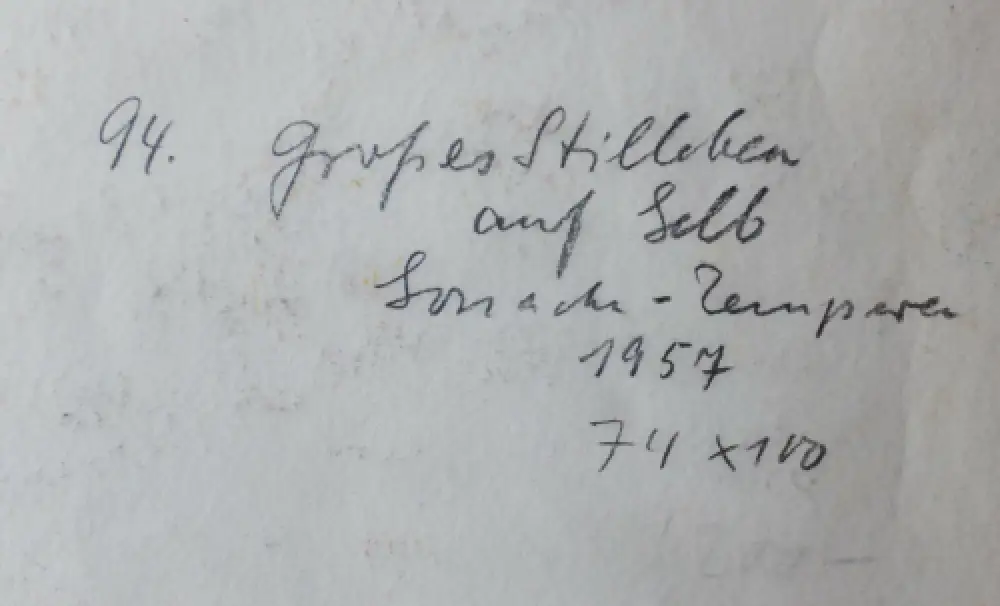 94. Großes Stilleben
auf Gelb
Gouache-Tempera
1957
74 x 100